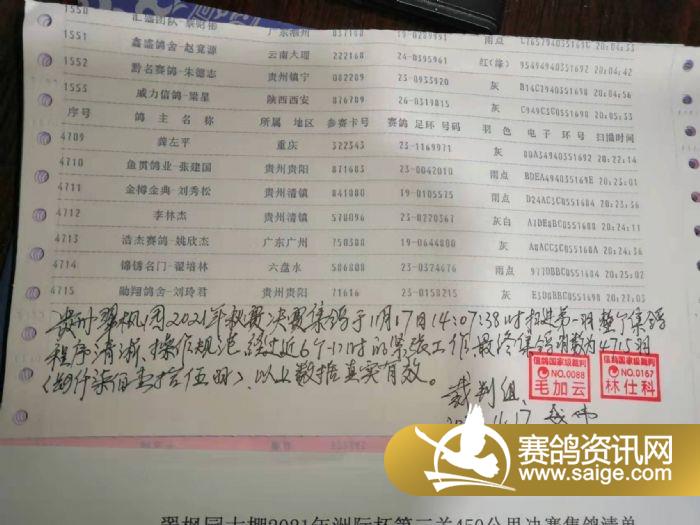 1550 汇盛团队-
1551 鑫盛鸽舍-赵竟源 云南大理 222168 24-0395961 红(绛) 95494940351692 20:04:42
1552 黔名赛鸽-朱德志 贵州镇宁 082209 23-0933920 灰 B14C7940351698 20:04:56
1553 威力信鸽-梁星 陕西西安 876709 26-0319815 灰 C949C3C0551698 20:05:00
序号 鸽主名称 所属地区 参赛卡号 赛鸽足环号码 羽色 电子环号 扫描时间
4709 龚左平 重庆 322343 23-1169971 灰 00A34940351692 20:22:14
4710 鱼贯鸽业-张建国 贵州贵阳 871603 23-0042010 雨点 BDEA494035169E 20:23:05
4711 金樽金典-刘秀松 贵州清镇 841080 19-0105575 雨点 D24AC3C0551684 20:23:36
4712 李林杰 贵州清镇 578096 23-0220367 灰白 A1DE8BC0551688 20:24:11
4713 浩杰赛鸽-姚欣杰 广东广州 750308 19-0644800 灰 A8ACC3C055168A 20:24:36
4714 锦锈名门-翟培林 六盘水 586808 23-0324476 雨点 977DBBC0551684 20:25:02
4715 勔翔鸽舍-刘玲君 贵州贵阳 71616 23-0158215 灰 E5D8BBC0551688 20:27:03
贵州翠枫园2021年秋赛决赛集鸽于11月17日14:07:38时扫进第一羽,整个集鸽
程序清晰、操作规范,经过近6个小时的紧张工作,最终集鸽羽数为4715羽
(肆仟柒佰壹拾伍羽),以上数据真实有效。
裁判组:
信鸽国家级裁判
NO.0088
毛加云
信鸽国家级裁判
NO.0167
林仕科
11.17
赛鸽资讯网
www.saige.com
翠枫园大棚2021年洲际杯第三关450公里决赛集鸽清单